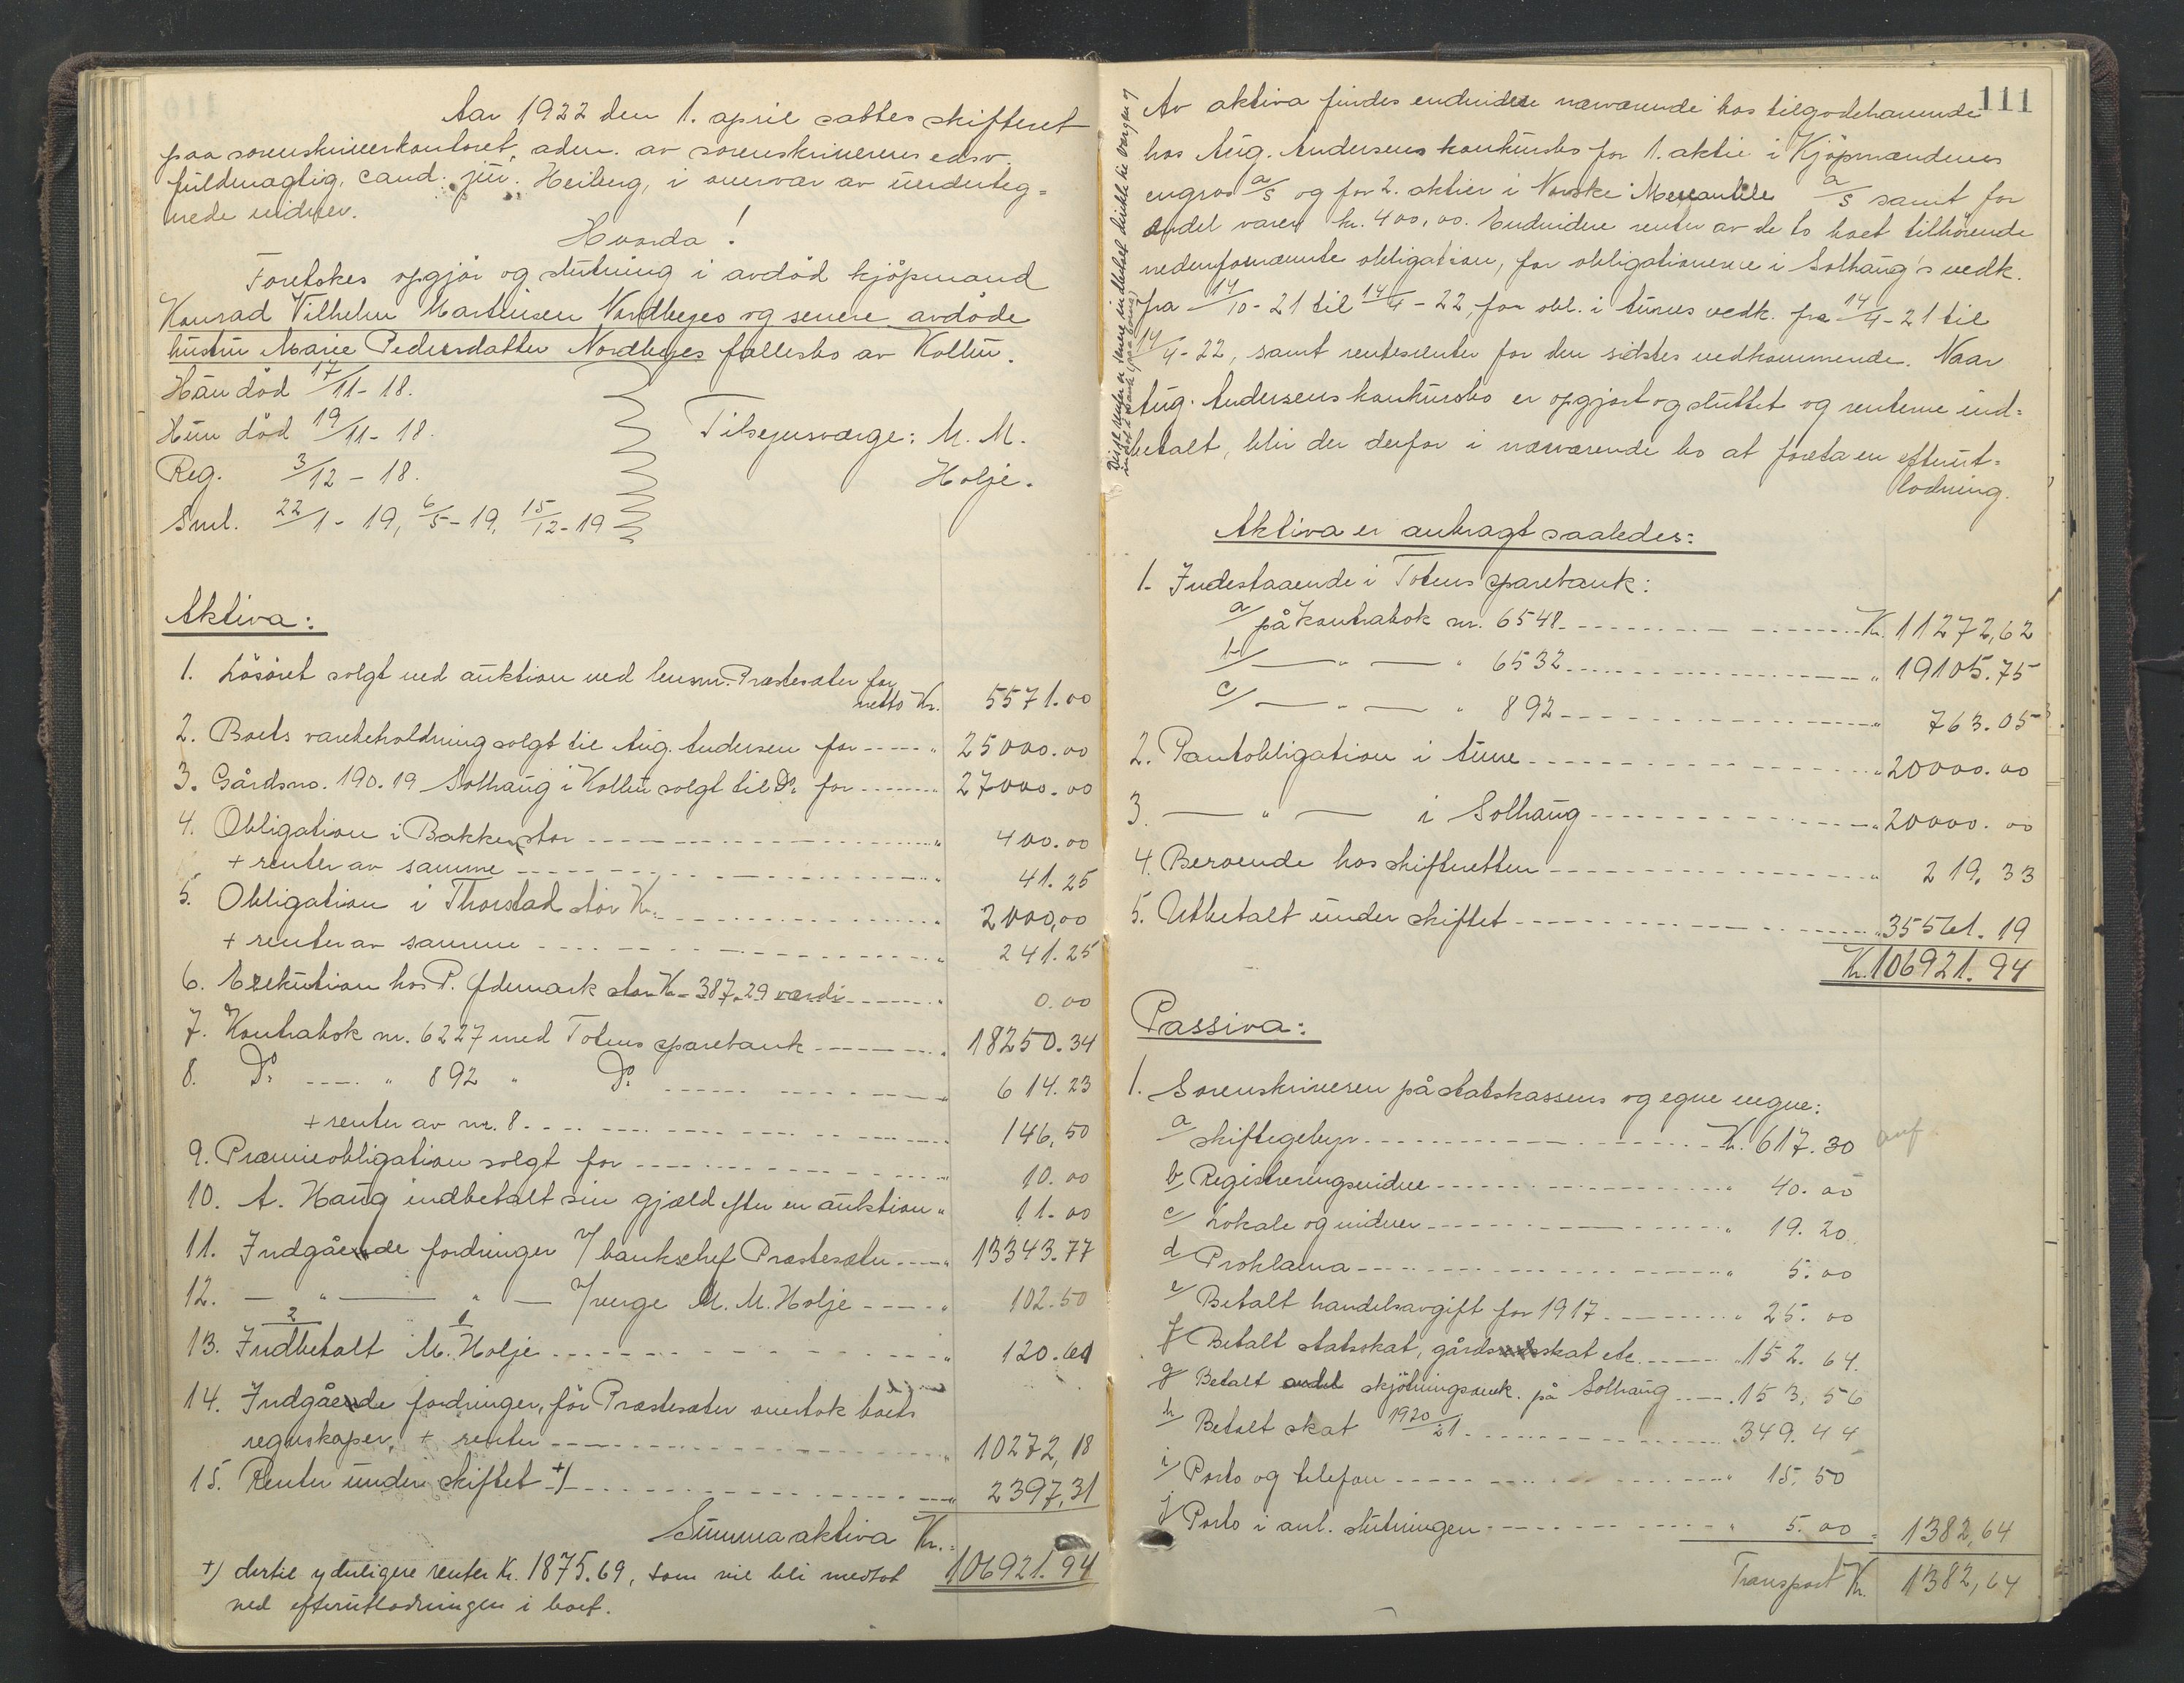 Aar 1922 den 1. april sattes skifteret
paa sorenskriverkontoret, adm. av sorenskriverens edsv.
fuldmægtig, cand. jur. Heiberg, i overvær av underteg=
nede vidner.
Hvorda!
Foretokes opgjør og slutning i avdød kjøpmand
Konrad Vilhelm Martinsen Nordbyes og senere avdøde
hustru Marie Pedersdatter Nordbyes fællesbo av Kolbu.
Han død 17/11-18.
Hun død 19/11-18.
Tilsynsværge: M. M.
Holje.
Reg. 3/12-18.
Sml. 22/1-19, 6/5-19, 15/12-19
Aktiva:
1. Løsøret solgt ved auktion ved lensm. Præstesæter for
netto Kr. 5571.00
2. Boets varebeholdning solgt til Aug. Andersen for " 25000.00
3. Gårdsno. 190.19 Solhaug i Kolbu solgt til Do. for " 27000.00
4. Obligation i Bakken stor " 400.00
+ renter av samme " 41.25
5. Obligation i Thorstad stor Kr. " 2000,00
+ renter av samme " 241.25
6. Exekution hos P. Ødemark stor Kr. 387.29 værdi " 0.00
7. Kontrabok nr. 6227 med Totens sparebank " 18250.34
8. Do. " 892 " Do. " 614.23
+ renter av nr. 8. " 146,50
9. Præmieobligation solgt for " 10.00
10. A. Haug indbetalt sin gjæld efter en auktion " 11.00
11. Indgåede fordringer v/banksjef Præstesæter " 13343.77
12. — " — " — v/verge M. M. Holje " 102.50
13. Indbetalt M. Holje " 120.61
14. Indgåede fordringer, før Præstesæter overtok boets
regnskaper, + renter " 10272,18
15. Renter under skiftet +) " 2397,31
Summa aktiva Kr. 106921.94
+) dertil yderligere renter Kr. 1875.69, som vil bli medtat
ved efterutlodningen i boet.
111
Av aktiva findes endvidere nærværende bos tilgodehavende
hos Aug. Andersens konkursbo for 1. aktie i Kjøpmændenes
engros a/s og for 2. aktier i Norske Mercantile a/s samt for
endel varer kr. 400,00. Endvidere renter av de to boet tilhørende
nedenfornævnte obligation, for obligationerne i Solhaug's vedk.
fra 14/10-21 til 14/4-22, for obl. i tunes vedk. fra 14/4-21 til
14/4-22, samt rentesrenter for den sidstes vedkommende. Naar
Aug. Andersens konkursbo er opgjort og sluttet og renterne ind=
betalt, blir der derfor i nærværende bo at foreta en efterut=
lodning.
Aktiva er anbragt saaledes:
1. Indestaaende i Totens sparebank:
a/ på kontrabok nr. 6548 Kr. 11272,62
b/ — " — " 6532 " 19105.75
c/ — " — " 892 " 763.05
2. Pantobligation i tune " 20000.00
3. — " — i Solhaug " 20000.00
4. Beroende hos skifteretten " 219.33
5. Utbetalt under skiftet " 35561.19
Kr. 106921.94
Passiva:
1. Sorenskriveren på statskassens og egne vegne:
a/ Skiftegebyr Kr. 617.30
b/ Registreringsvidner " 40.00
c/ Lokale og vidner " 19.20
d/ Proklama " 5.00
e/ Betalt handelsavgift for 1917 " 25.00
f/ Betalt statsskat, gårdsskat etc. " 152.64
g/ Betalt skjøtningsomk. på Solhaug " 153,56
h/ Betalt skat 1920/21 349.44
i/ Porto og telefon " 15.50
j/ Porto i anl. slutningen " 5.00 = 1382,64
Transport Kr. 1382,64